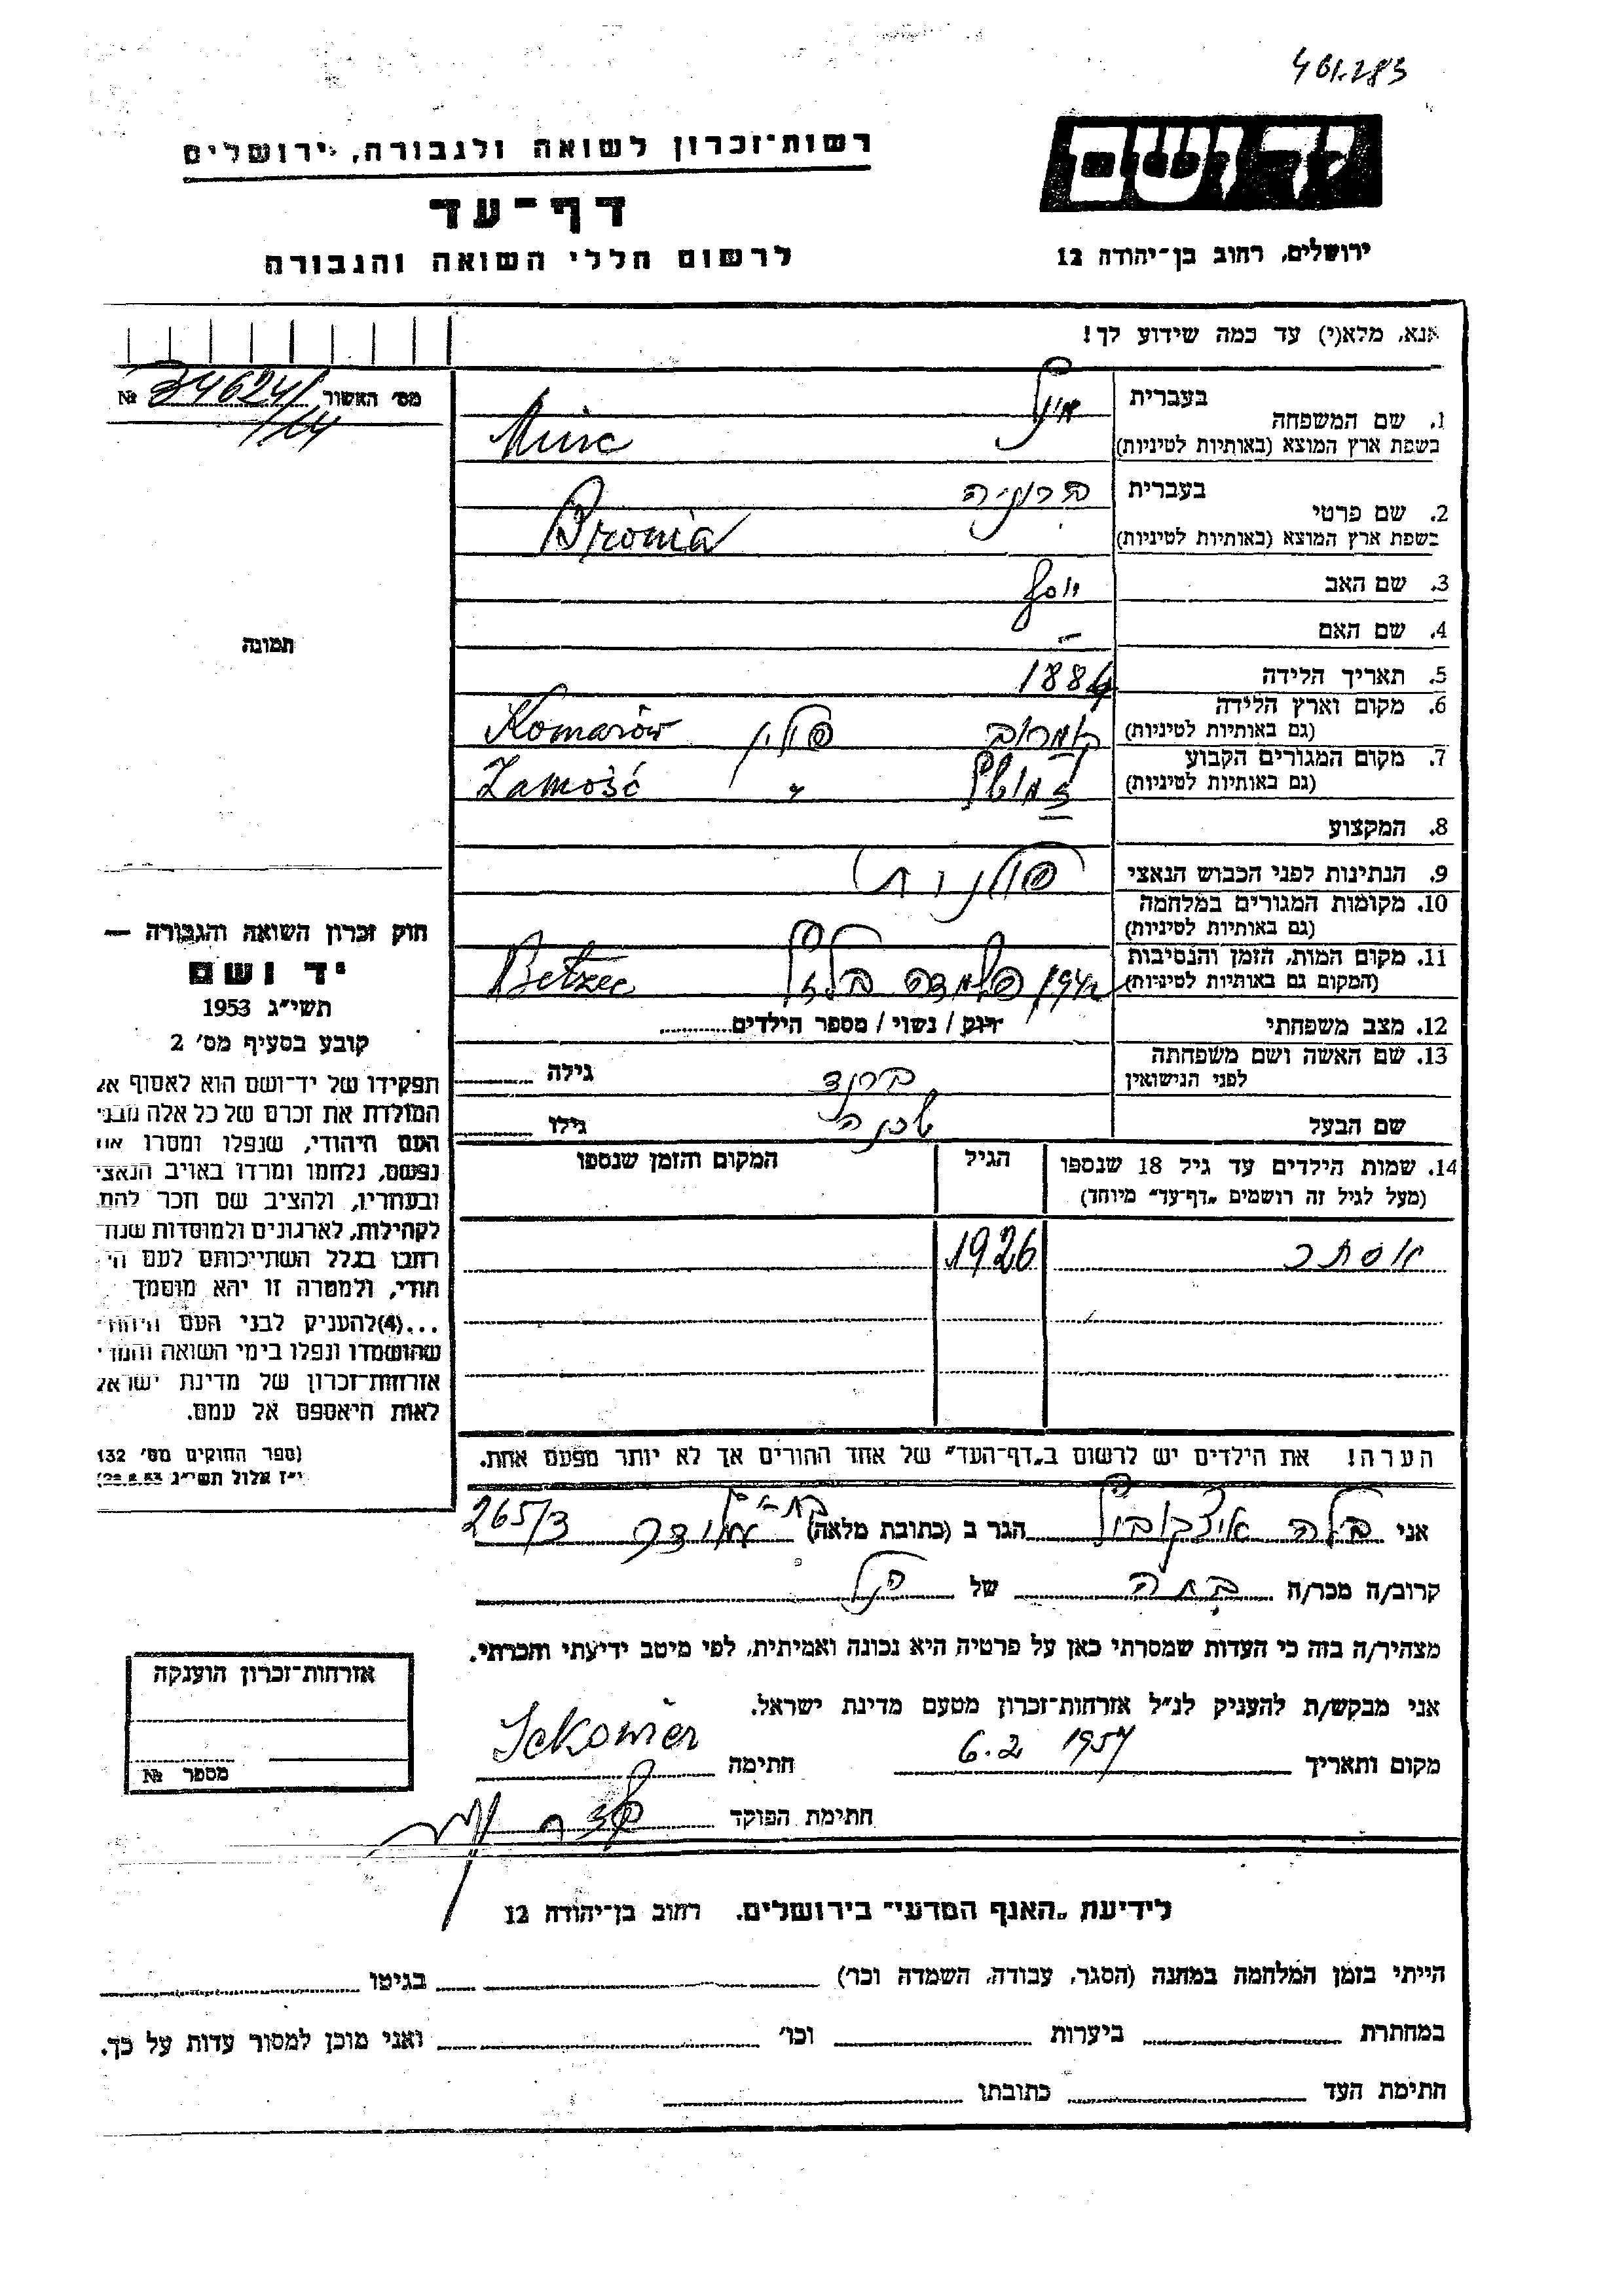 401.283
יד ושם
רשות־זכרון לשואה ולגבורה, ירושלים
דף־עד
לרשום חללי השואה והגבורה
ירושלים, רחוב בן־יהודה 12
אנא, מלא(י) עד כמה שידוע לך!
מס׳ האשור 346241/14 №
1. שם המשפחה
בעברית מינץ
בשפת ארץ המוצא (באותיות לטיניות) Minc
2. שם פרטי
בעברית ברוניה
בשפת ארץ המוצא (באותיות לטיניות) Bronia
3. שם האב יוסף
4. שם האם –
תמונה
5. תאריך הלידה 1884
6. מקום וארץ הלידה
(גם באותיות לטיניות) קומרוב פולין Komarów
7. מקום המגורים הקבוע
(גם באותיות לטיניות) זמושץ " Zamość
8. המקצוע –
9. הנתינות לפני הכבוש הנאצי פולנית
10. מקומות המגורים במלחמה
(גם באותיות לטיניות)
11. מקום המות, הזמן והנסיבות
(המקום גם באותיות לטיניות) בלזץ Betzec
12. מצב משפחתי רוק / נשוי / מספר הילדים
13. שם האשה ושם משפחתה
לפני הנישואין ברנד גילה
שם הבעל גילו
14. שמות הילדים עד גיל 18 שנספו הגיל המקום והזמן שנספו
(מעל לגיל זה רושמים „דף־עד״ מיוחד)
אסתר 1926
הערה! את הילדים יש לרשום ב„דף־העד״ של אחד ההורים אך לא יותר מפעם אחת.
חוק זכרון השואה והגבורה —
יד ושם
תשי״ג 1953
קובע בסעיף מס׳ 2
תפקידו של יד־ושם הוא לאסוף אל
המולדת את זכרם של כל אלה מבני
העם היהודי, שנפלו ומסרו את
נפשם, נלחמו ומרדו באויב הנאצי
ובעוזריו, ולהציב שם וזכר להם,
לקהילות, לארגונים ולמוסדות שנח־
רבו בגלל השתייכותם לעם הי־
הודי, ולמטרה זו יהא מוסמך
...(4) להעניק לבני העם היהודי
שהושמדו ונפלו בימי השואה והמרי
אזרחות־זכרון של מדינת ישראל
לאות היאספם אל עמם.
(ספר החוקים מס׳ 132
י״ז אלול תשי״ג 28.8.53)
אני בלה איצקוביץ הגר ב (כתובת מלאה) 265/3
קרוב/ה מכר/ה בתה של הנ״ל
מצהיר/ה בזה כי העדות שמסרתי כאן על פרטיה היא נכונה ואמיתית, לפי מיטב ידיעתי והכרתי.
אני מבקש/ת להעניק לנ״ל אזרחות־זכרון מטעם מדינת ישראל.
מקום ותאריך 6.2 1957 חתימה
חתימת הפוקד
אזרחות־זכרון הוענקה
מספר №
לידיעת „האגף המדעי״ בירושלים. רחוב בן־יהודה 12
הייתי בזמן המלחמה במחנה (הסגר, עבודה, השמדה וכו׳) בגיטו
במחתרת ביערות וכו׳ ואני מוכן למסור עדות על כך.
חתימת העד כתובתו